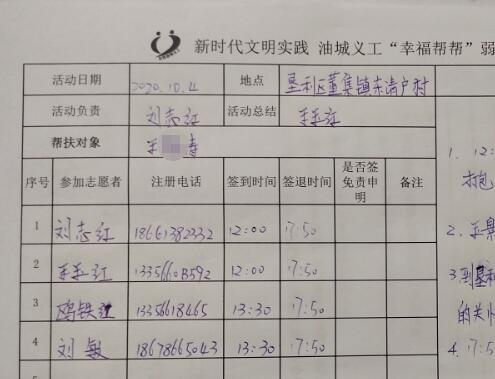 新时代文明实践 油城义工“幸福帮帮”弱
活动日期 2020.10.4 地点 垦利区董集镇东请户村
活动负责 刘志红 活动总结
帮扶对象
序号 参加志愿者 注册电话 签到时间 签退时间 是否签免责申明 备注
1 刘志红 18661382332 12:00 17:50
2 12:00 17:50
3 13356618465 13:30 17:50
4 刘敏 18678665043 13:30 17:50
1. 12:
2.
3
的关
4. 17:5